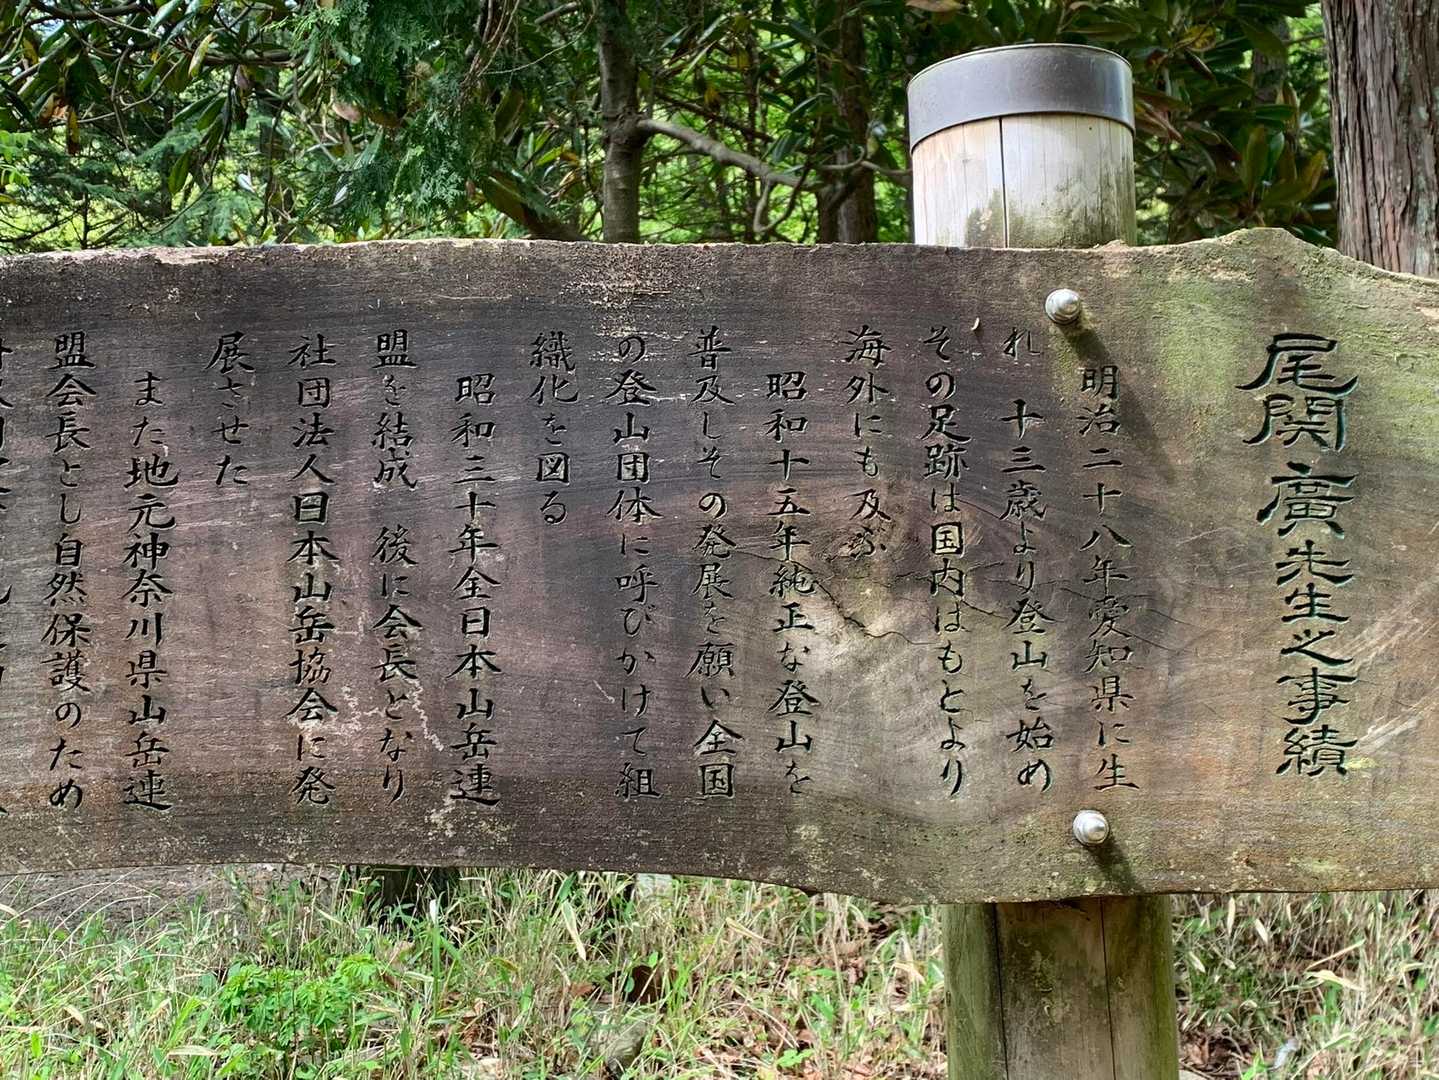 尾関廣先生之事績
明治二十八年愛知県に生
れ 十三歳より登山を始め
その足跡は国内はもとより
海外にも及ぶ
昭和十五年純正な登山を
普及しその発展を願い全国
の登山団体に呼びかけて組
織化を図る
昭和三十年全日本山岳連
盟を結成 後に会長となり
社団法人日本山岳協会に発
展させた
また地元神奈川県山岳連
盟会長とし自然保護のため